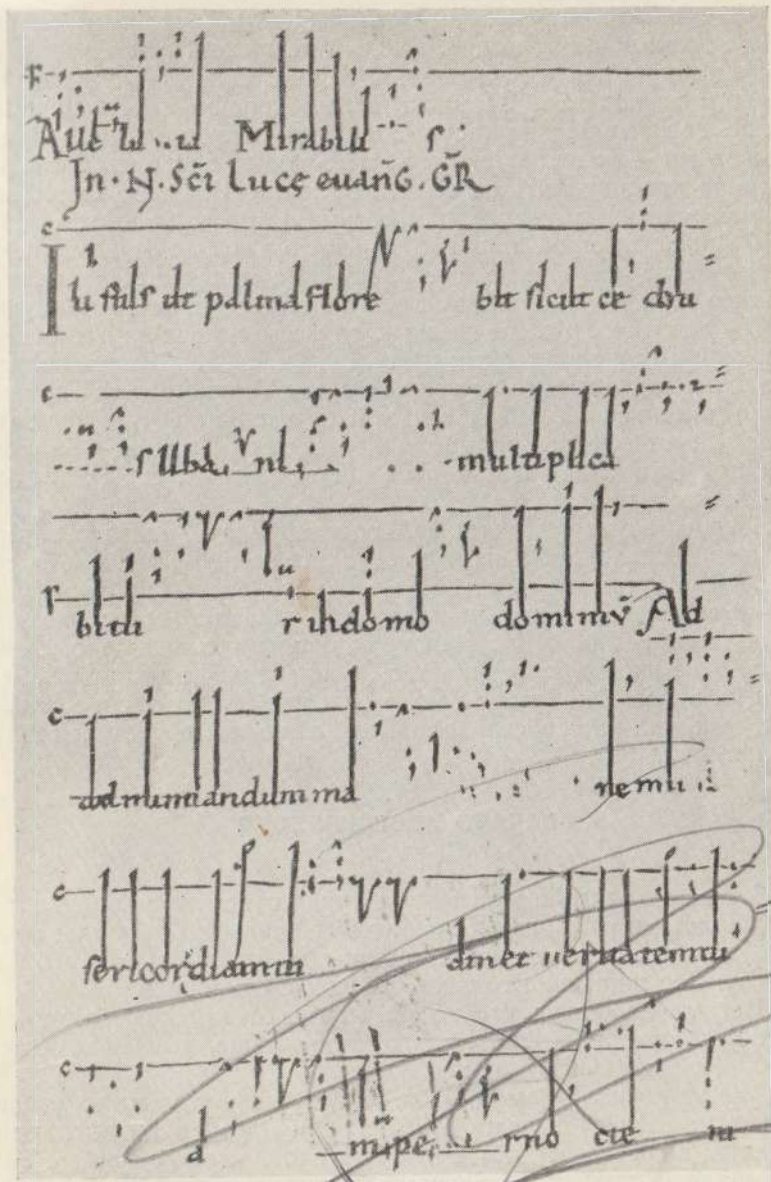 Aue lu .. ia Mirabili s
In · N · Sci Luce evang . GR
Iustus ut palma flore bit sicut ce dru
s liba ni multiplica
bitu r in domo domini v Ad
ad nuntiandum ma ne mi
sericordiam tu am et veritatem tu
a m per no cte m